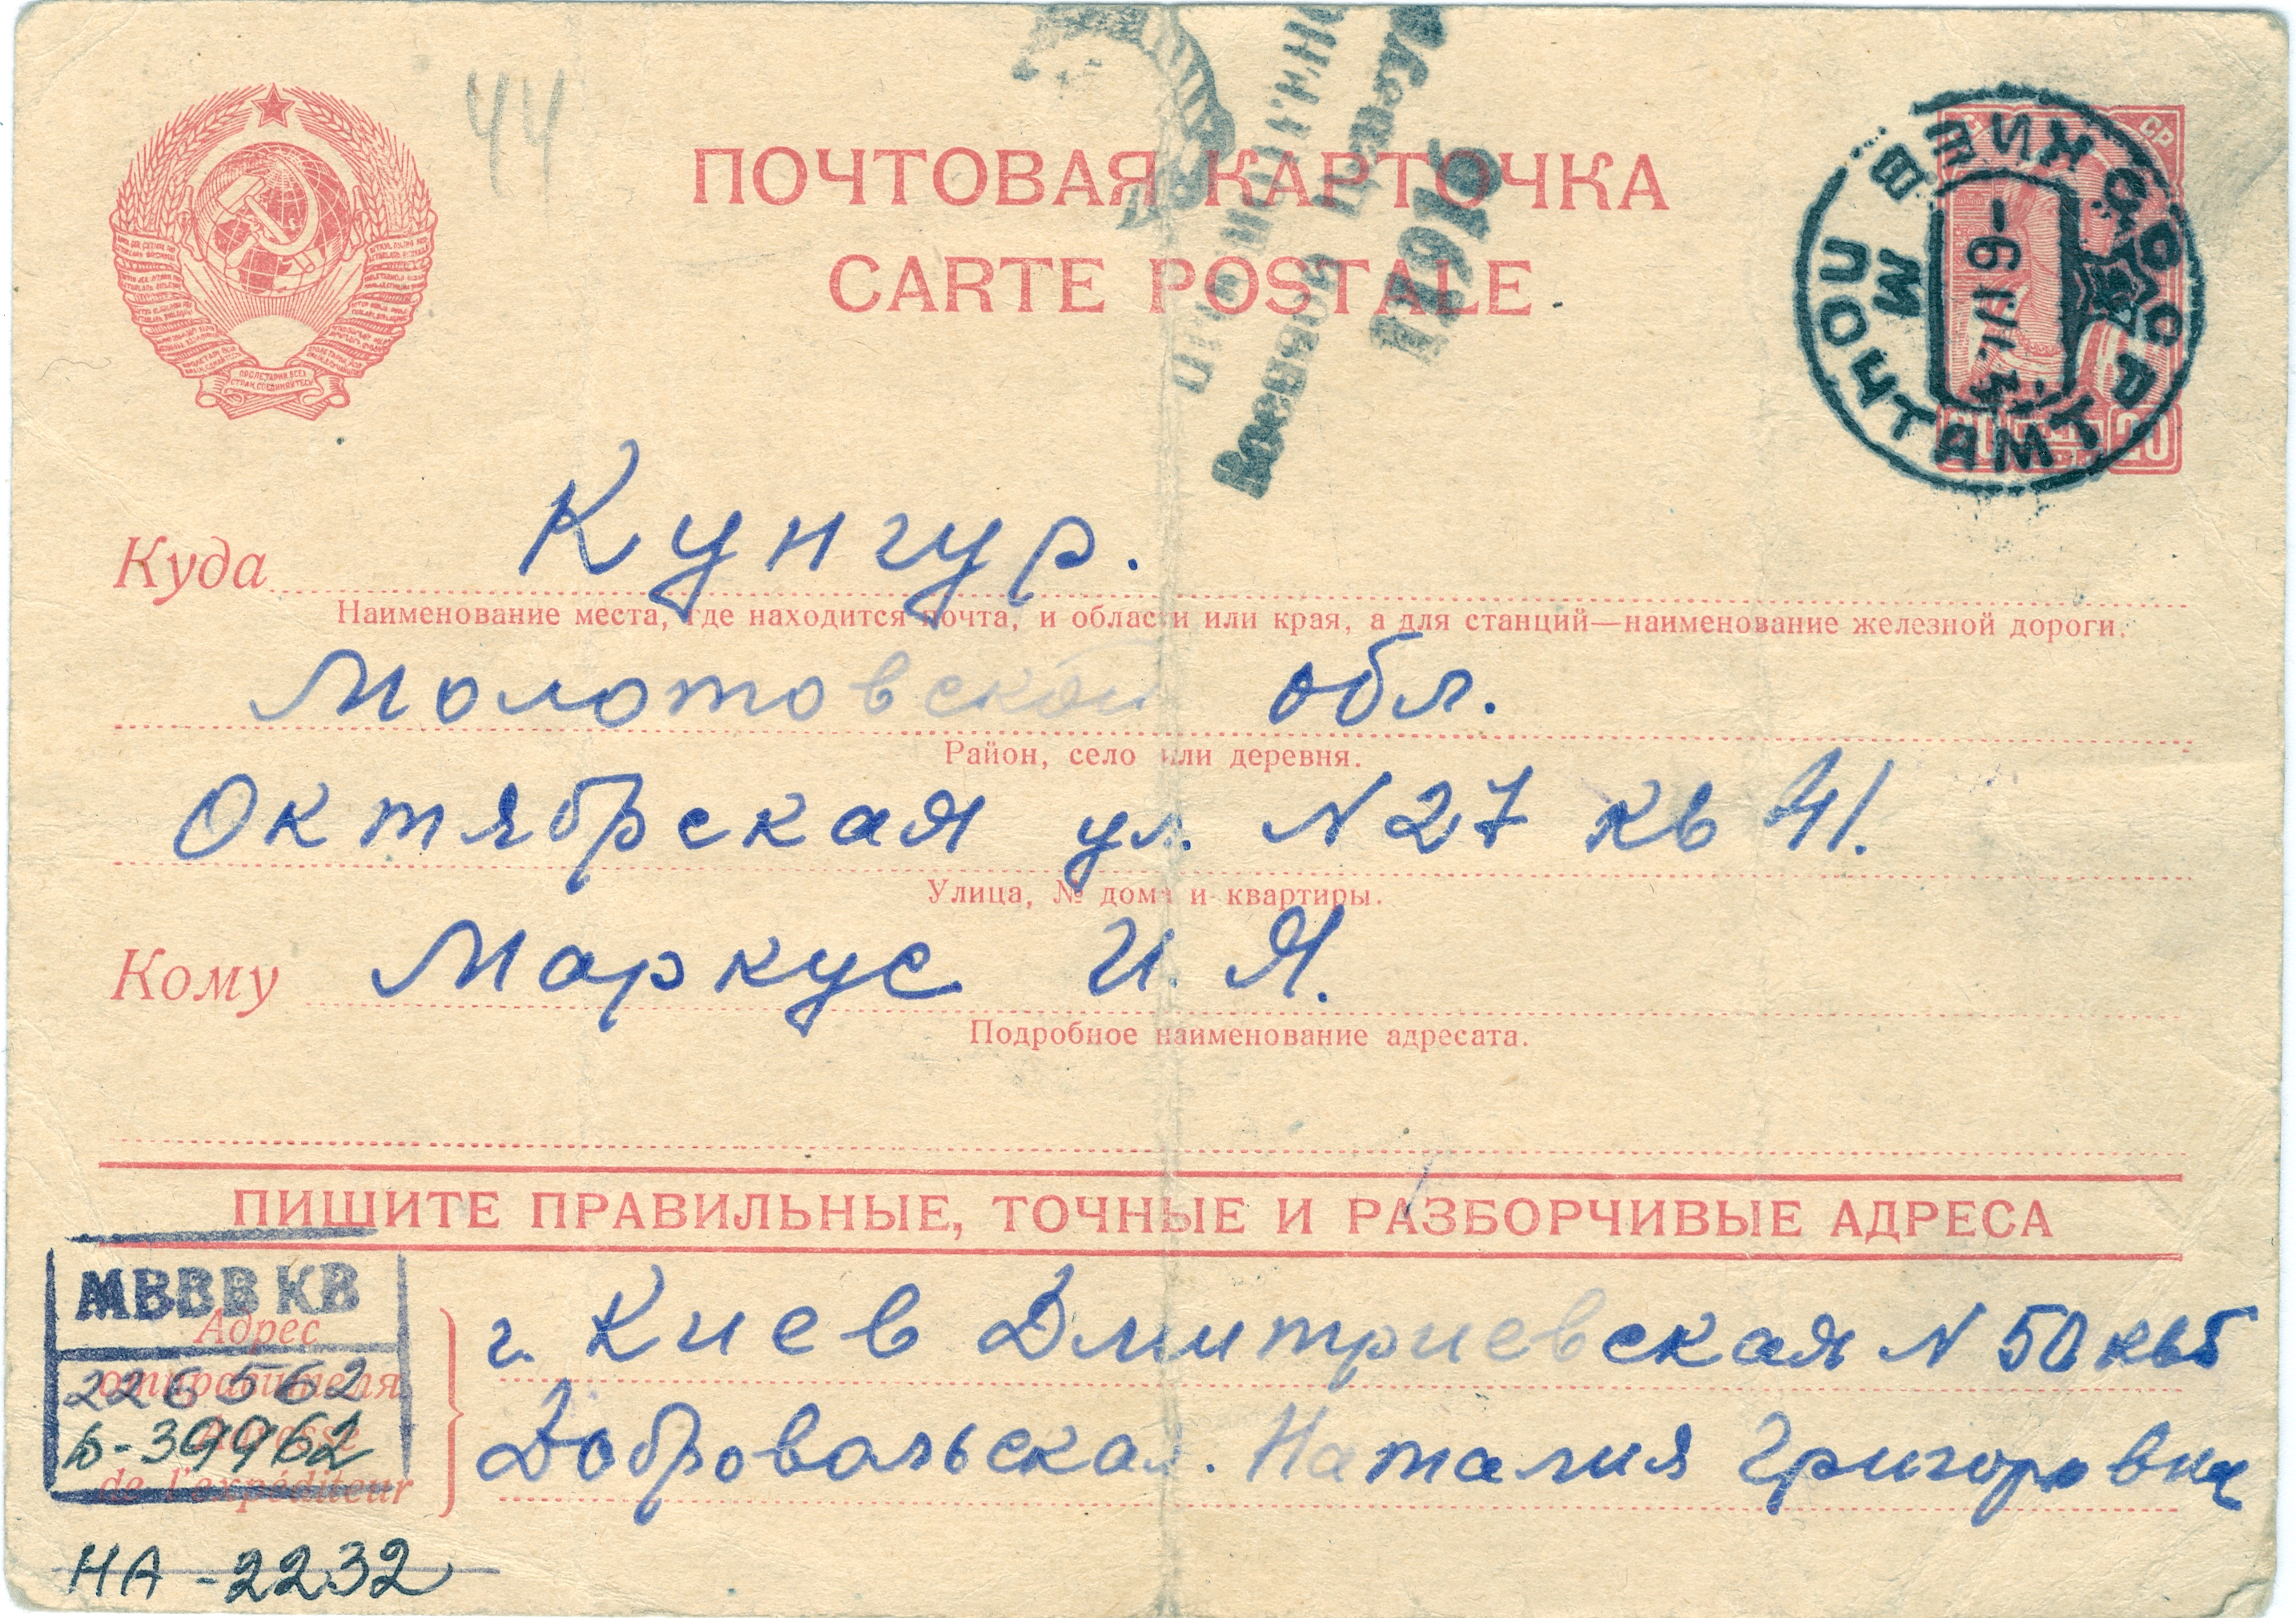 44
ПОЧТОВАЯ КАРТОЧКА
CARTE POSTALE
КИЕВ
СССР
ПОЧТАМТ
20
Куда Кунгур.
Наименование места, где находится почта, и области или края, а для станций—наименование железной дороги.
Молотовской обл.
Район, село или деревня.
Октябрская ул. N 27 кв 41.
Улица, № дома и квартиры.
Кому Маркус И. Я.
Подробное наименование адресата.
ПИШИТЕ ПРАВИЛЬНЫЕ, ТОЧНЫЕ И РАЗБОРЧИВЫЕ АДРЕСА
МВВВ КВ
226562
Адрес отправителя
Adresse de l'expéditeur
г. Киев Дмитриевская N 50 кв 5
Добровольская. Наталия Григоровна
НА-2232